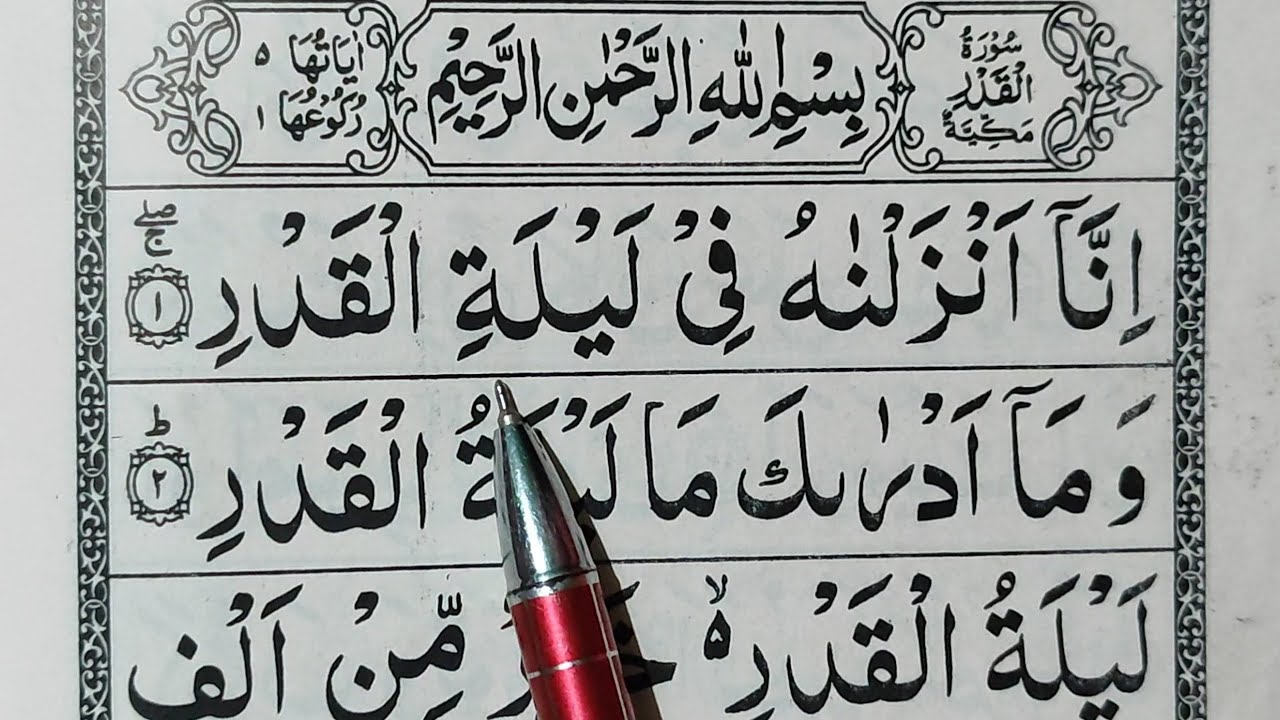 سُوْرَةُ
الْقَدْرِ
مَكِّيَّةٌ
بِسْمِ اللّٰهِ الرَّحْمٰنِ الرَّحِيْمِ
اٰيَاتُهَا ٥
رُكُوْعُهَا ١
اِنَّآ اَنْزَلْنٰهُ فِيْ لَيْلَةِ الْقَدْرِ ١ ج صلے
وَ مَآ اَدْرٰىكَ مَا الْقَدْرِ ٢ ط
لَيْلَةُ الْقَدْرِ ٥ لا مِّنْ اَلْفِ